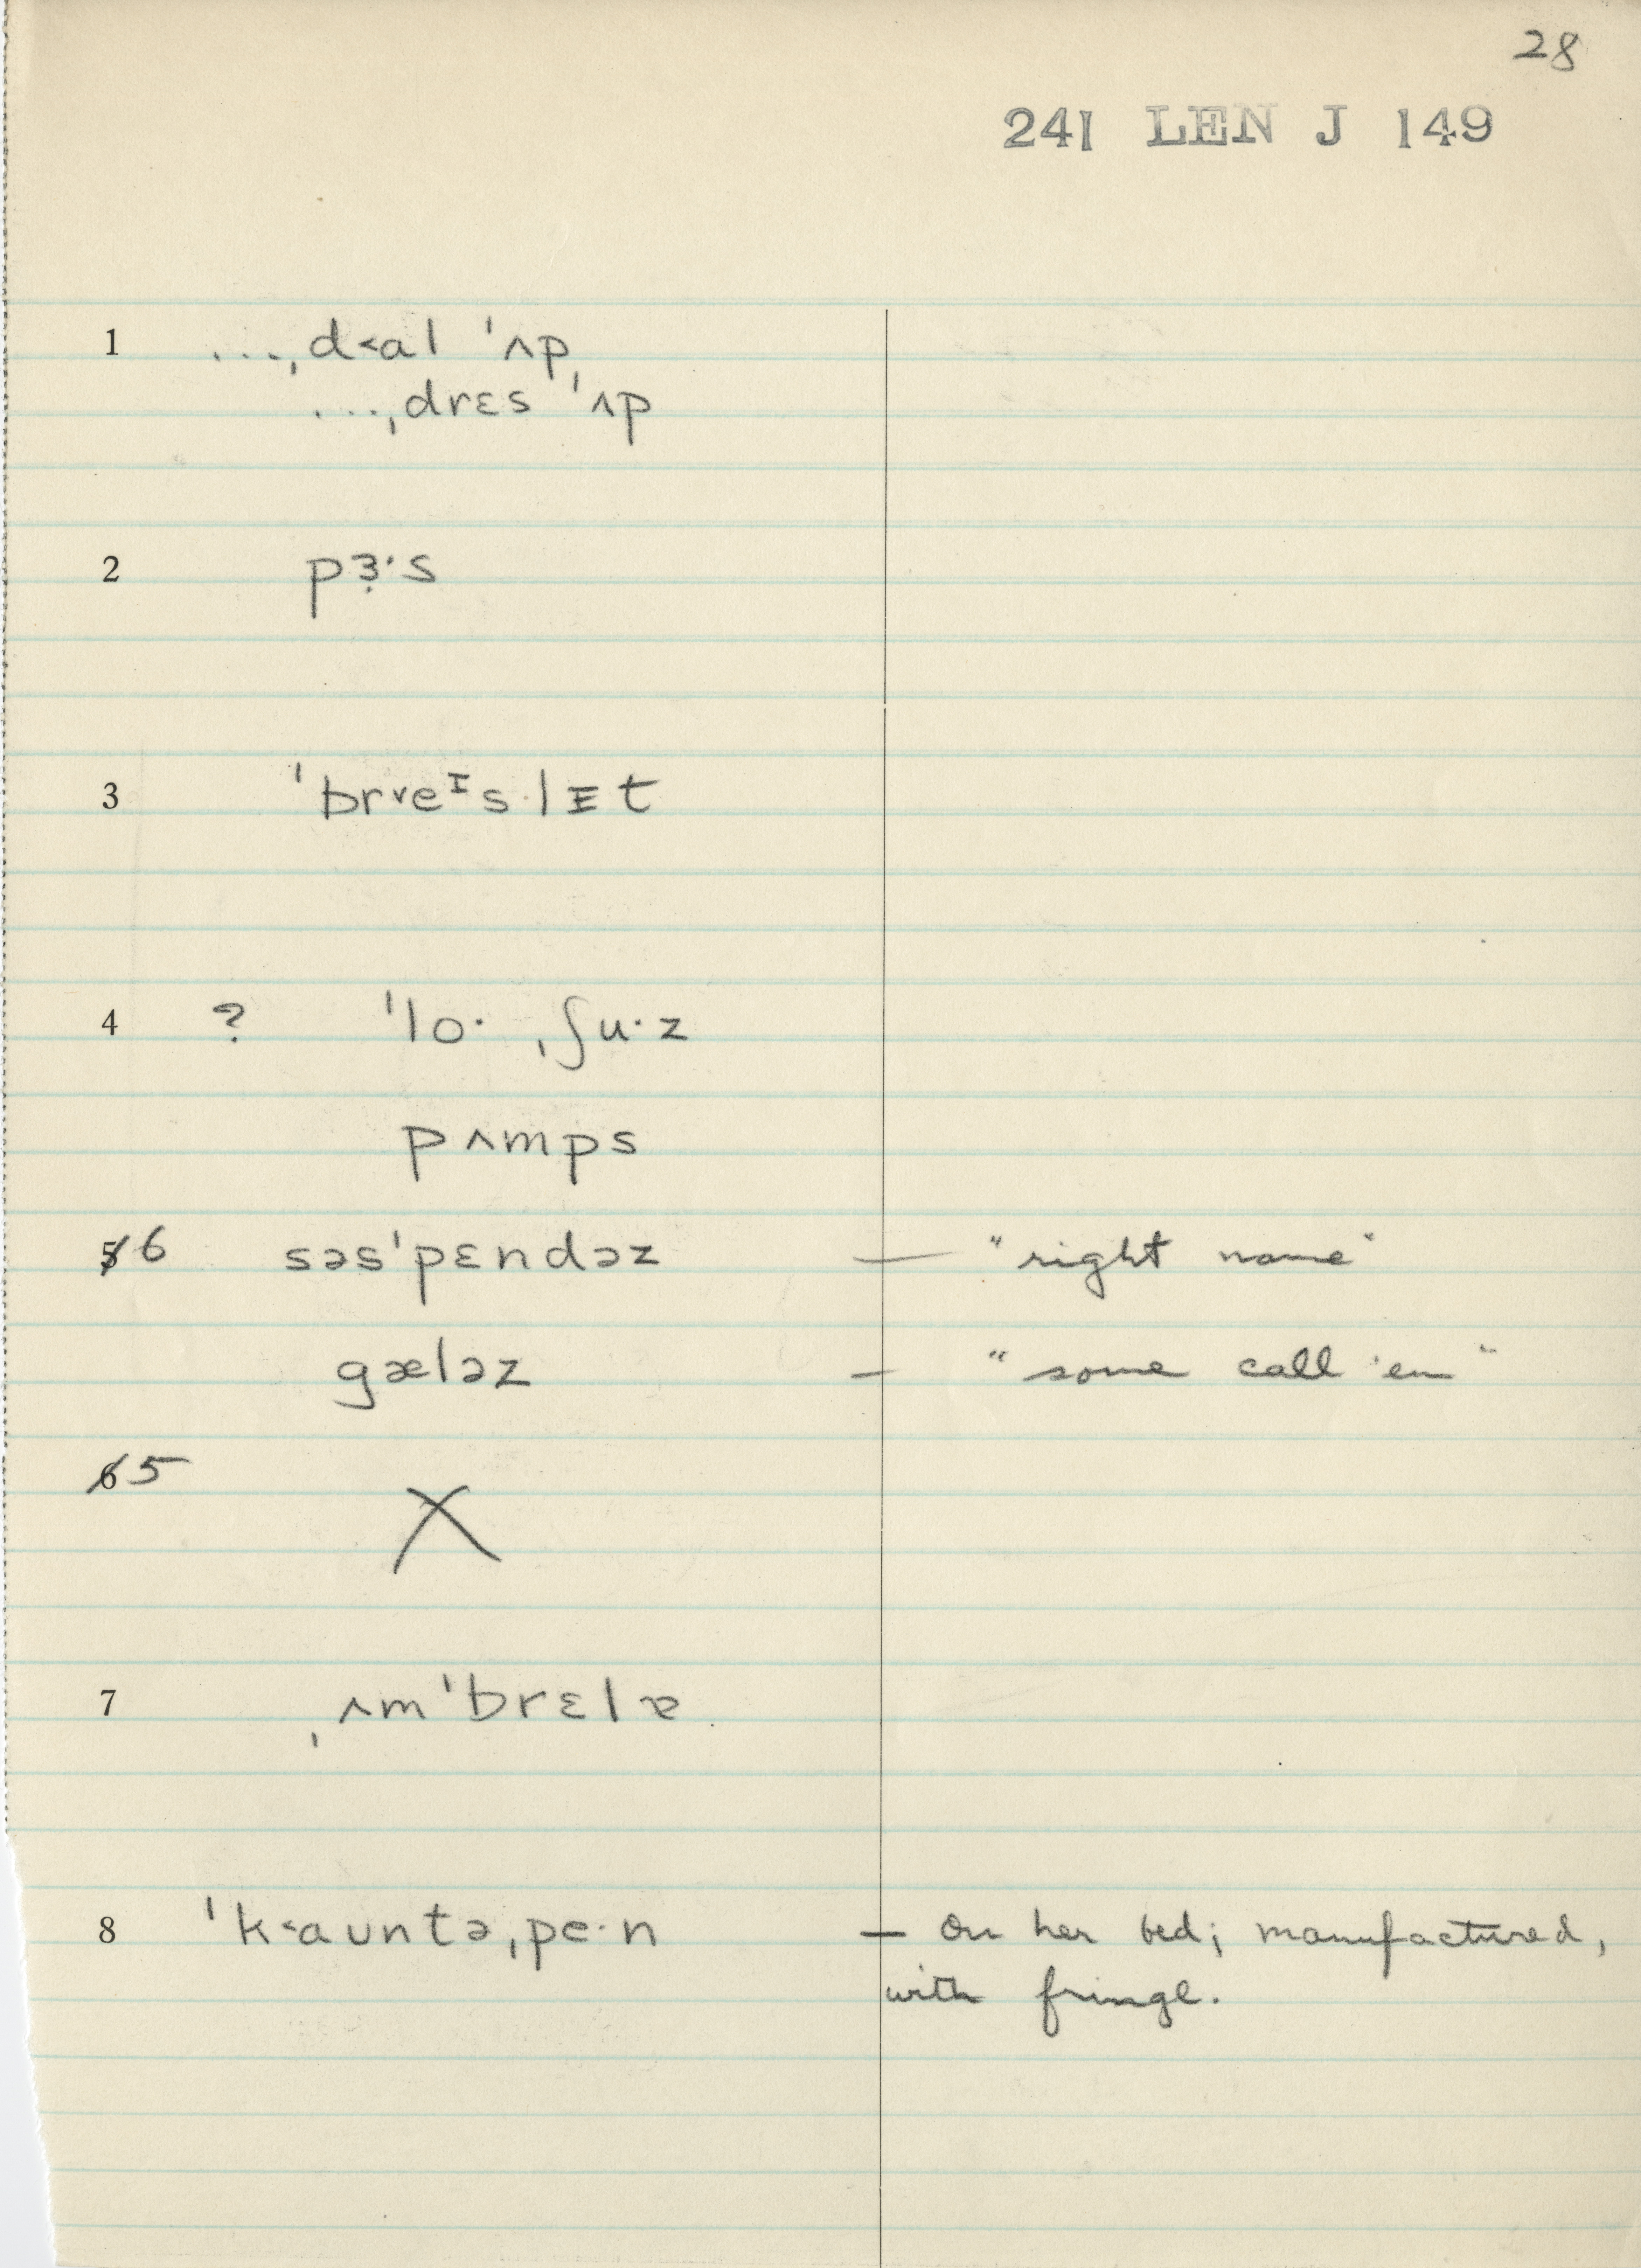 28
241 LEN J 149
1 ...ˌd˂al ˈʌp,
...ˌdrɛs ˈʌp
2 pɜ̣·s
3 ˈbr˅eᶦs·lɪt
4 ? ˈlo· ˌʃu·z
pʌmps
5 6 səsˈpɛndəz — "right name"
gæləz — "some call 'em"
6 5 X
7 ˌʌmˈbrɛlɐ
8 ˈk˂auntəˌpe·n — On her bed; manufactured,
with fringe.